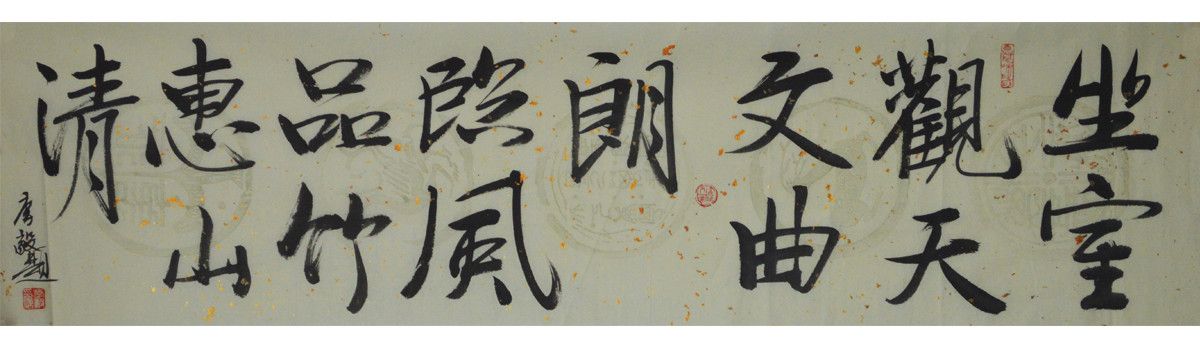 坐室
觀天
文曲
朗
臨風
品竹
惠山
清